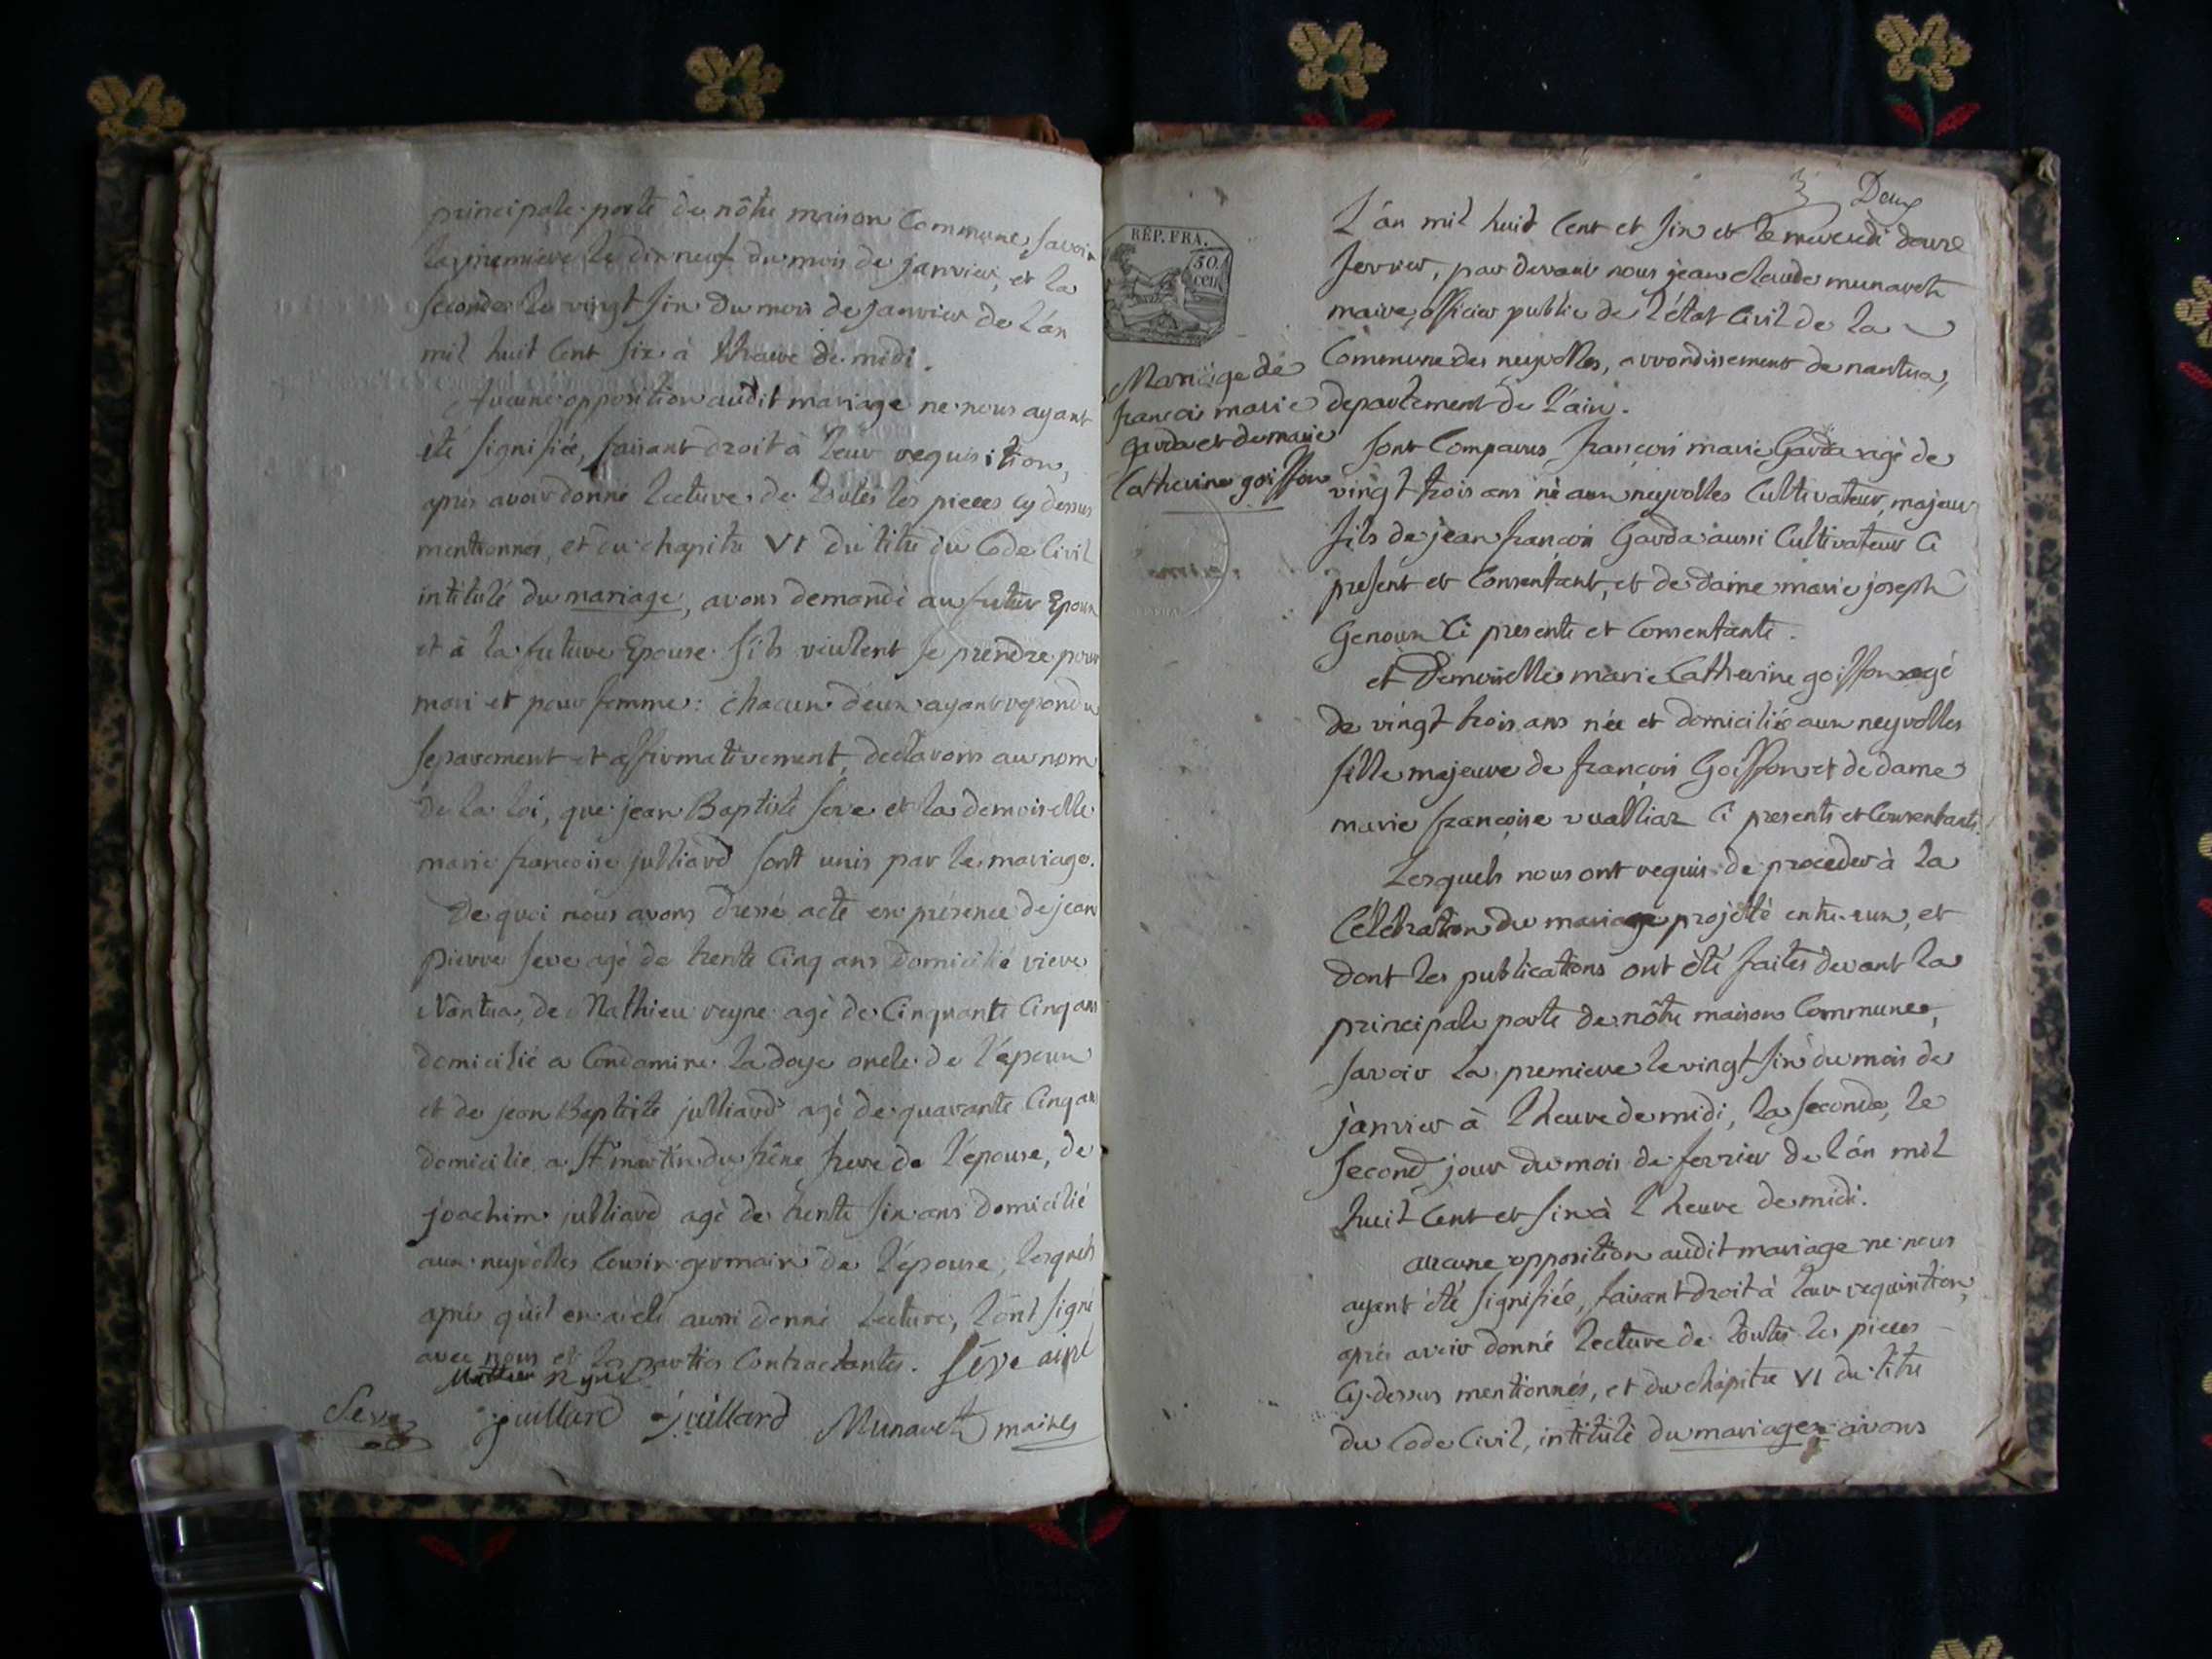 principale porte de nôtre maison Commune, savoir
la premiere le dix neuf du mois de janvier, et la
seconde le vingt six du mois de janvier de l'an
mil huit Cent six à l'heure de midi.
Aucune opposition audit mariage ne nous ayant
été signifiée, faisant droit à leur requisition,
après avoir donné lecture de toutes les pieces cy dessus
mentionnés, et du chapitre VI du titre du Code Civil
intitulé du mariage, avons demandé au futur Epoux
et à la future Epouse s'ils veulent se prendre pour
mari et pour femme: chacun d'eux ayant repondu
separement et affirmativement, declarons au nom
de la loi, que jean Baptiste seve et la demoiselle
marie francoise julliard sont unis par le mariage.
De quoi nous avons dressé acte en présence de jean
pierre seve agé de trente Cinq ans domicilié
Nantua, de Mathieu reyne agé de Cinquante Cinq ans
domicilié a Condamine la doye oncle de l'époux
et de jean Baptiste julliard agé de quarante Cinq an
domicilié a St martin du frêne frere de l'épouse, de
joachim julliard agé de trente six ans domicilié
aux neyrolles Cousin germain de l'épouse, lesquels
après qu'il en a été aussi donné lecture, l'ont signé
avec nous et les parties Contractantes. Séve
Seve juillard juillard Munaret maire
3 Deux
RÉP. FRA.
50.
cen.
Mariage de
francois marie
garda et de marie
Catherine goiffon
L'an mil huit Cent et six et le mercredi douze
fevrier, par devant nous jean claude munaret
maire, officier public de l'état Civil de la
Commune des neyrolles, arrondissement de nantua,
departement de l'ain.
sont Comparus françois marie Garda agé de
vingt trois ans né aux neyrolles Cultivateur, majeur
fils de jean françois Garda aussi Cultivateur Ci
present et Consentant, et de dame marie joseph
Genoux Ci presente et Consentante.
et Demoiselle marie Catherine goiffon agé
de vingt trois ans née et domiciliée aux neyrolles
fille majeure de françois Goiffon et de dame
marie françoise vualliaz Ci presents et Consentants.
Lesquels nous ont requis de proceder à la
Célébration du mariage projetté entre eux, et
dont les publications ont été faites devant la
principale porte de nôtre maison Commune,
savoir la premiere le vingt six du mois de
janvier à l'heure de midi, la seconde, le
second jour du mois de fevrier de l'an mil
huit Cent et six à l'heure de midi.
aucune opposition audit mariage ne nous
ayant été signifiée, faisant droit à leur requisition,
après avoir donné lecture de toutes les pieces
Cy-dessus mentionnés, et du chapitre VI du titre
du Code Civil, intitulé du mariage, avons